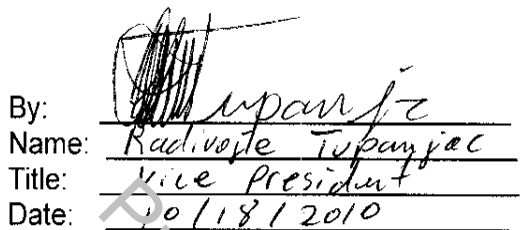 By: Tupanjac
Name: Radivoje Tupanjac
Title: Vice President
Date: 10/18/2010
P.